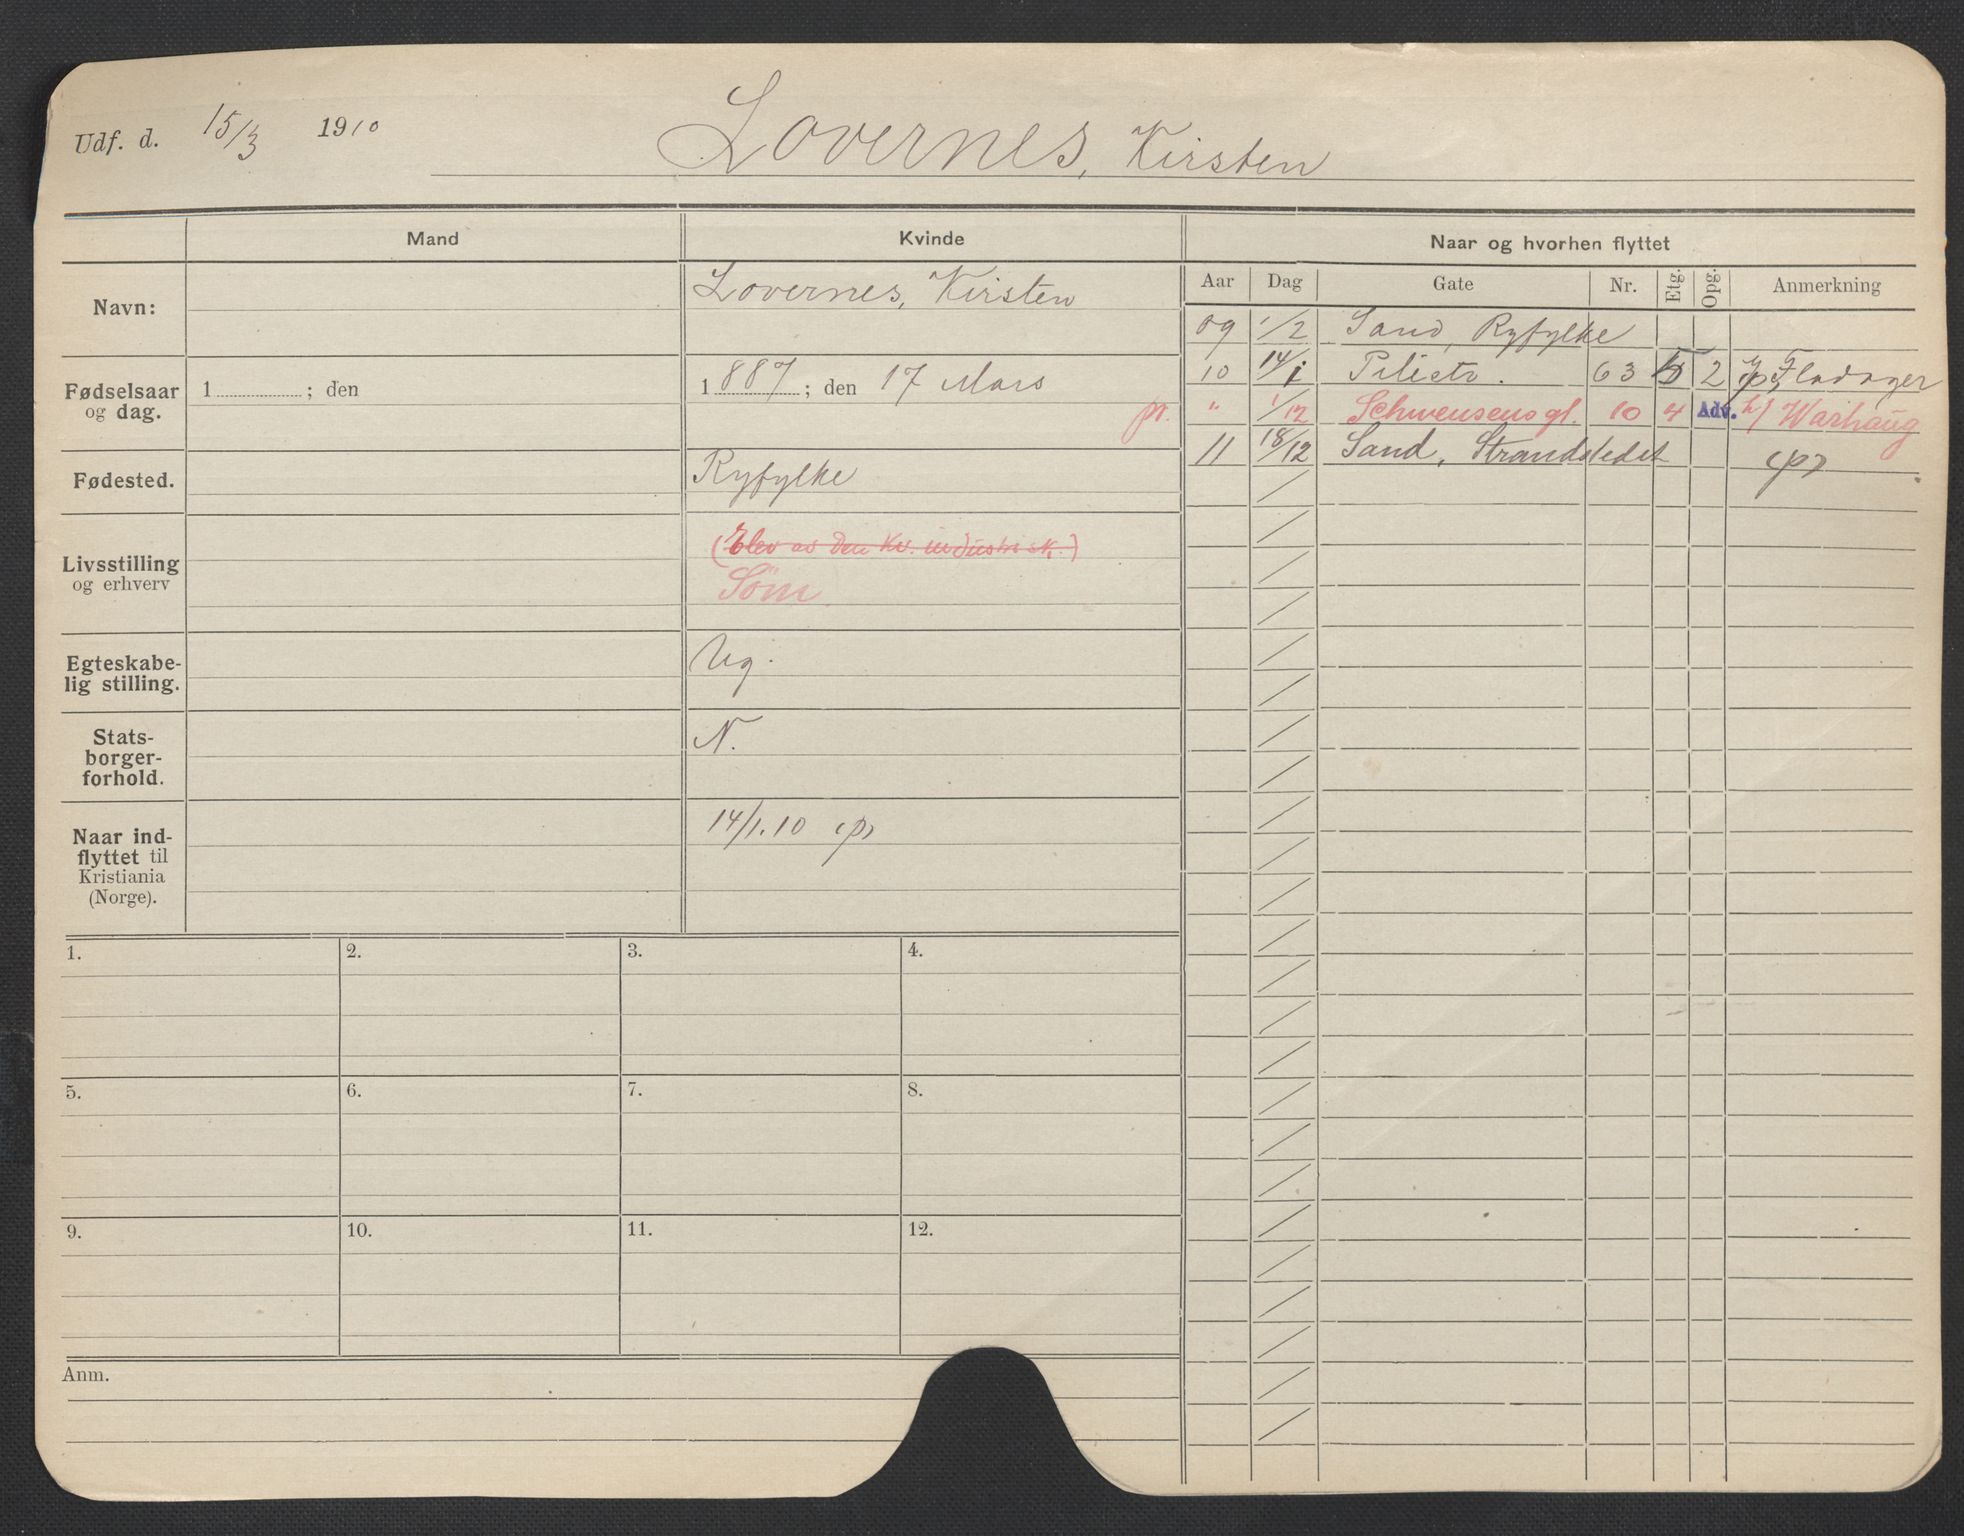 Udf. d. 15/3 1910 Lovernes, Kirsten
Mand Kvinde Naar og hvorhen flyttet
Aar Dag Gate Nr. Etg. Opg. Anmerkning
Navn: Lovernes, Kirsten
Fødselsaar og dag. 1 ; den 1887 ; den 17 Mars
pr.
Fødested. Ryfylke
Livsstilling og erhverv (Elev av den kv. industrisk.)
Søm.
Egteskabe-
lig stilling. Ug.
Stats-
borger-
forhold. N.
Naar ind-
flyttet til
Kristiania
(Norge). 14/1.10 (p)
09 1/2 Sand, Ryfylke
10 14/1 Pilestr. 63 5 2 Fladager
" 1/12 Schwensensgt. 10 4 Adv. h/ Warhaug
11 18/12 Sand, Strandstedet (p)
1. 2. 3. 4.
5. 6. 7. 8.
9. 10. 11. 12.
Anm.